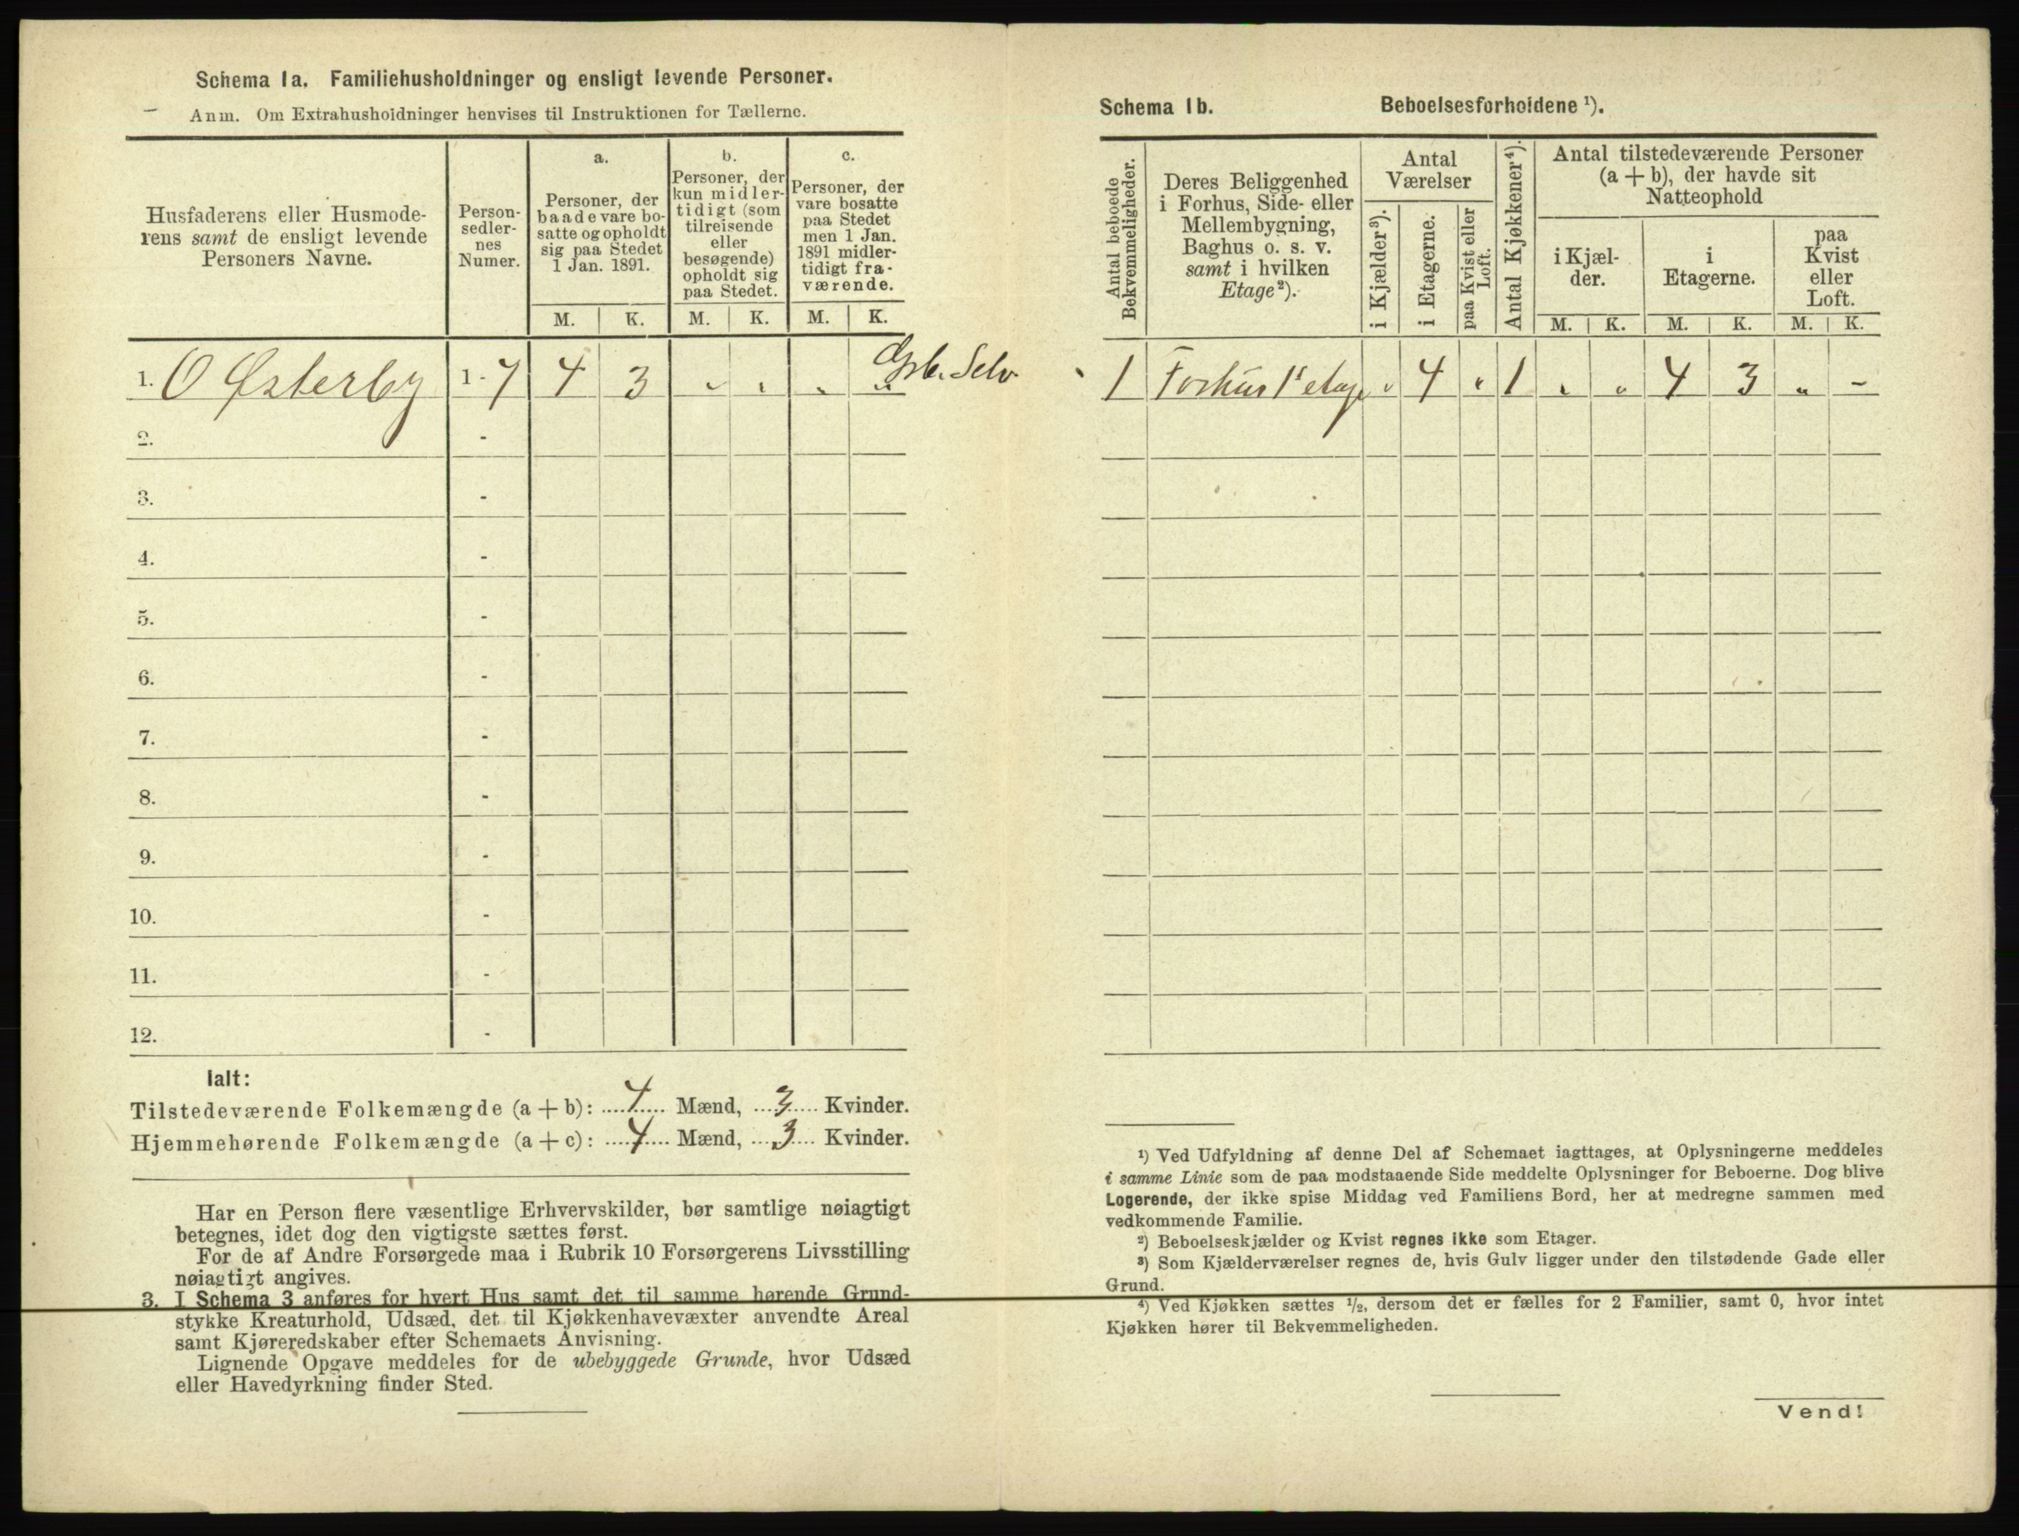 Schema 1a. Familiehusholdninger og ensligt levende Personer.
Anm. Om Extrahusholdninger henvises til Instruktionen for Tællerne.
Husfaderens eller Husmode-
rens samt de ensligt levende
Personers Navne.
Person-
sedler-
nes
Numer.
a.
Personer, der
baade vare bo-
satte og opholdt
sig paa Stedet
1 Jan. 1891.
b.
Personer, der
kun midler-
tidigt (som
tilreisende
eller
besøgende)
opholdt sig
paa Stedet.
c.
Personer, der
vare bosatte
paa Stedet
men 1 Jan.
1891 midler-
tidigt fra-
værende.
M. K. M. K. M. K.
1. O Østerby 1 - 7 4 3 „ „ „ „ Grb. Selv.
2. -
3. -
4. -
5. -
6. -
7. -
8. -
9. -
10. -
11. -
12. -
Ialt:
Tilstedeværende Folkemængde (a + b): 4 Mænd, 3 Kvinder.
Hjemmehørende Folkemængde (a + c): 4 Mænd, 3 Kvinder.
Har en Person flere væsentlige Erhvervskilder, bør samtlige nøiagtigt
betegnes, idet dog den vigtigste sættes først.
For de af Andre Forsørgede maa i Rubrik 10 Forsørgerens Livsstilling
nøiagtigt angives.
3. I Schema 3 anføres for hvert Hus samt det til samme hørende Grund-
stykke Kreaturhold, Udsæd, det til Kjøkkenhavevæxter anvendte Areal
samt Kjøreredskaber efter Schemaets Anvisning.
Lignende Opgave meddeles for de ubebyggede Grunde, hvor Udsæd
eller Havedyrkning finder Sted.
Schema 1b. Beboelsesforholdene ¹).
Antal beboede
Bekvemmeligheder.
Deres Beliggenhed
i Forhus, Side- eller
Mellembygning,
Baghus o. s. v.
samt i hvilken
Etage²).
Antal
Værelser
i Kjælder³).
i Etagerne.
paa Kvist eller
Loft.
Antal Kjøkkener⁴).
Antal tilstedeværende Personer
(a + b), der havde sit
Natteophold
i Kjæl-
der.
i
Etagerne.
paa
Kvist
eller
Loft.
M. K. M. K. M. K.
1 Forhus 1ˢ etage „ 4 „ 1 „ „ 4 3 „ -
¹) Ved Udfyldning af denne Del af Schemaet iagttages, at Oplysningerne meddeles
i samme Linie som de paa modstaaende Side meddelte Oplysninger for Beboerne. Dog blive
Logerende, der ikke spise Middag ved Familiens Bord, her at medregne sammen med
vedkommende Familie.
²) Beboelseskjælder og Kvist regnes ikke som Etager.
³) Som Kjælderværelser regnes de, hvis Gulv ligger under den tilstødende Gade eller
Grund.
⁴) Ved Kjøkken sættes ½, dersom det er fælles for 2 Familier, samt 0, hvor intet
Kjøkken hører til Bekvemmeligheden.
Vend!